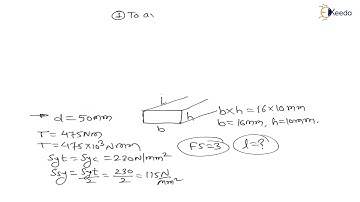 Ekeeda
① To av
l
h
b
b×h = 16×10mm
b=16mm, h=10mm.
d = 50mm
T = 475Nm
T = 475×10³ Nmm
Syt = Syc = 230N/mm²
Ssy = Syt/2 = 230/2 = 115 N/mm²
FS=3
l=?